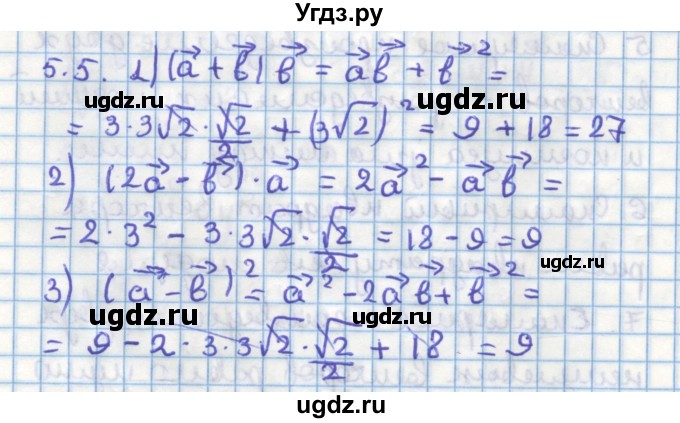 Угдз.ру
5.5. 1) (a⃗ + b⃗) b⃗ = a⃗b⃗ + b⃗² =
= 3·3√2 · √2/2 + (3√2)² = 9 + 18 = 27
2) (2a⃗ - b⃗)·a⃗ = 2a⃗² - a⃗b⃗ =
= 2·3² - 3·3√2 · √2/2 = 18 - 9 = 9
3) (a⃗ - b⃗)² = a⃗² - 2a⃗b⃗ + b⃗² =
= 9 - 2·3·3√2 · √2/2 + 18 = 9
ugdz.ru
ugdz.ru
ugdz.ru
ugdz.ru
ugdz.ru
ugdz.ru
ugdz.ru
ugdz.ru